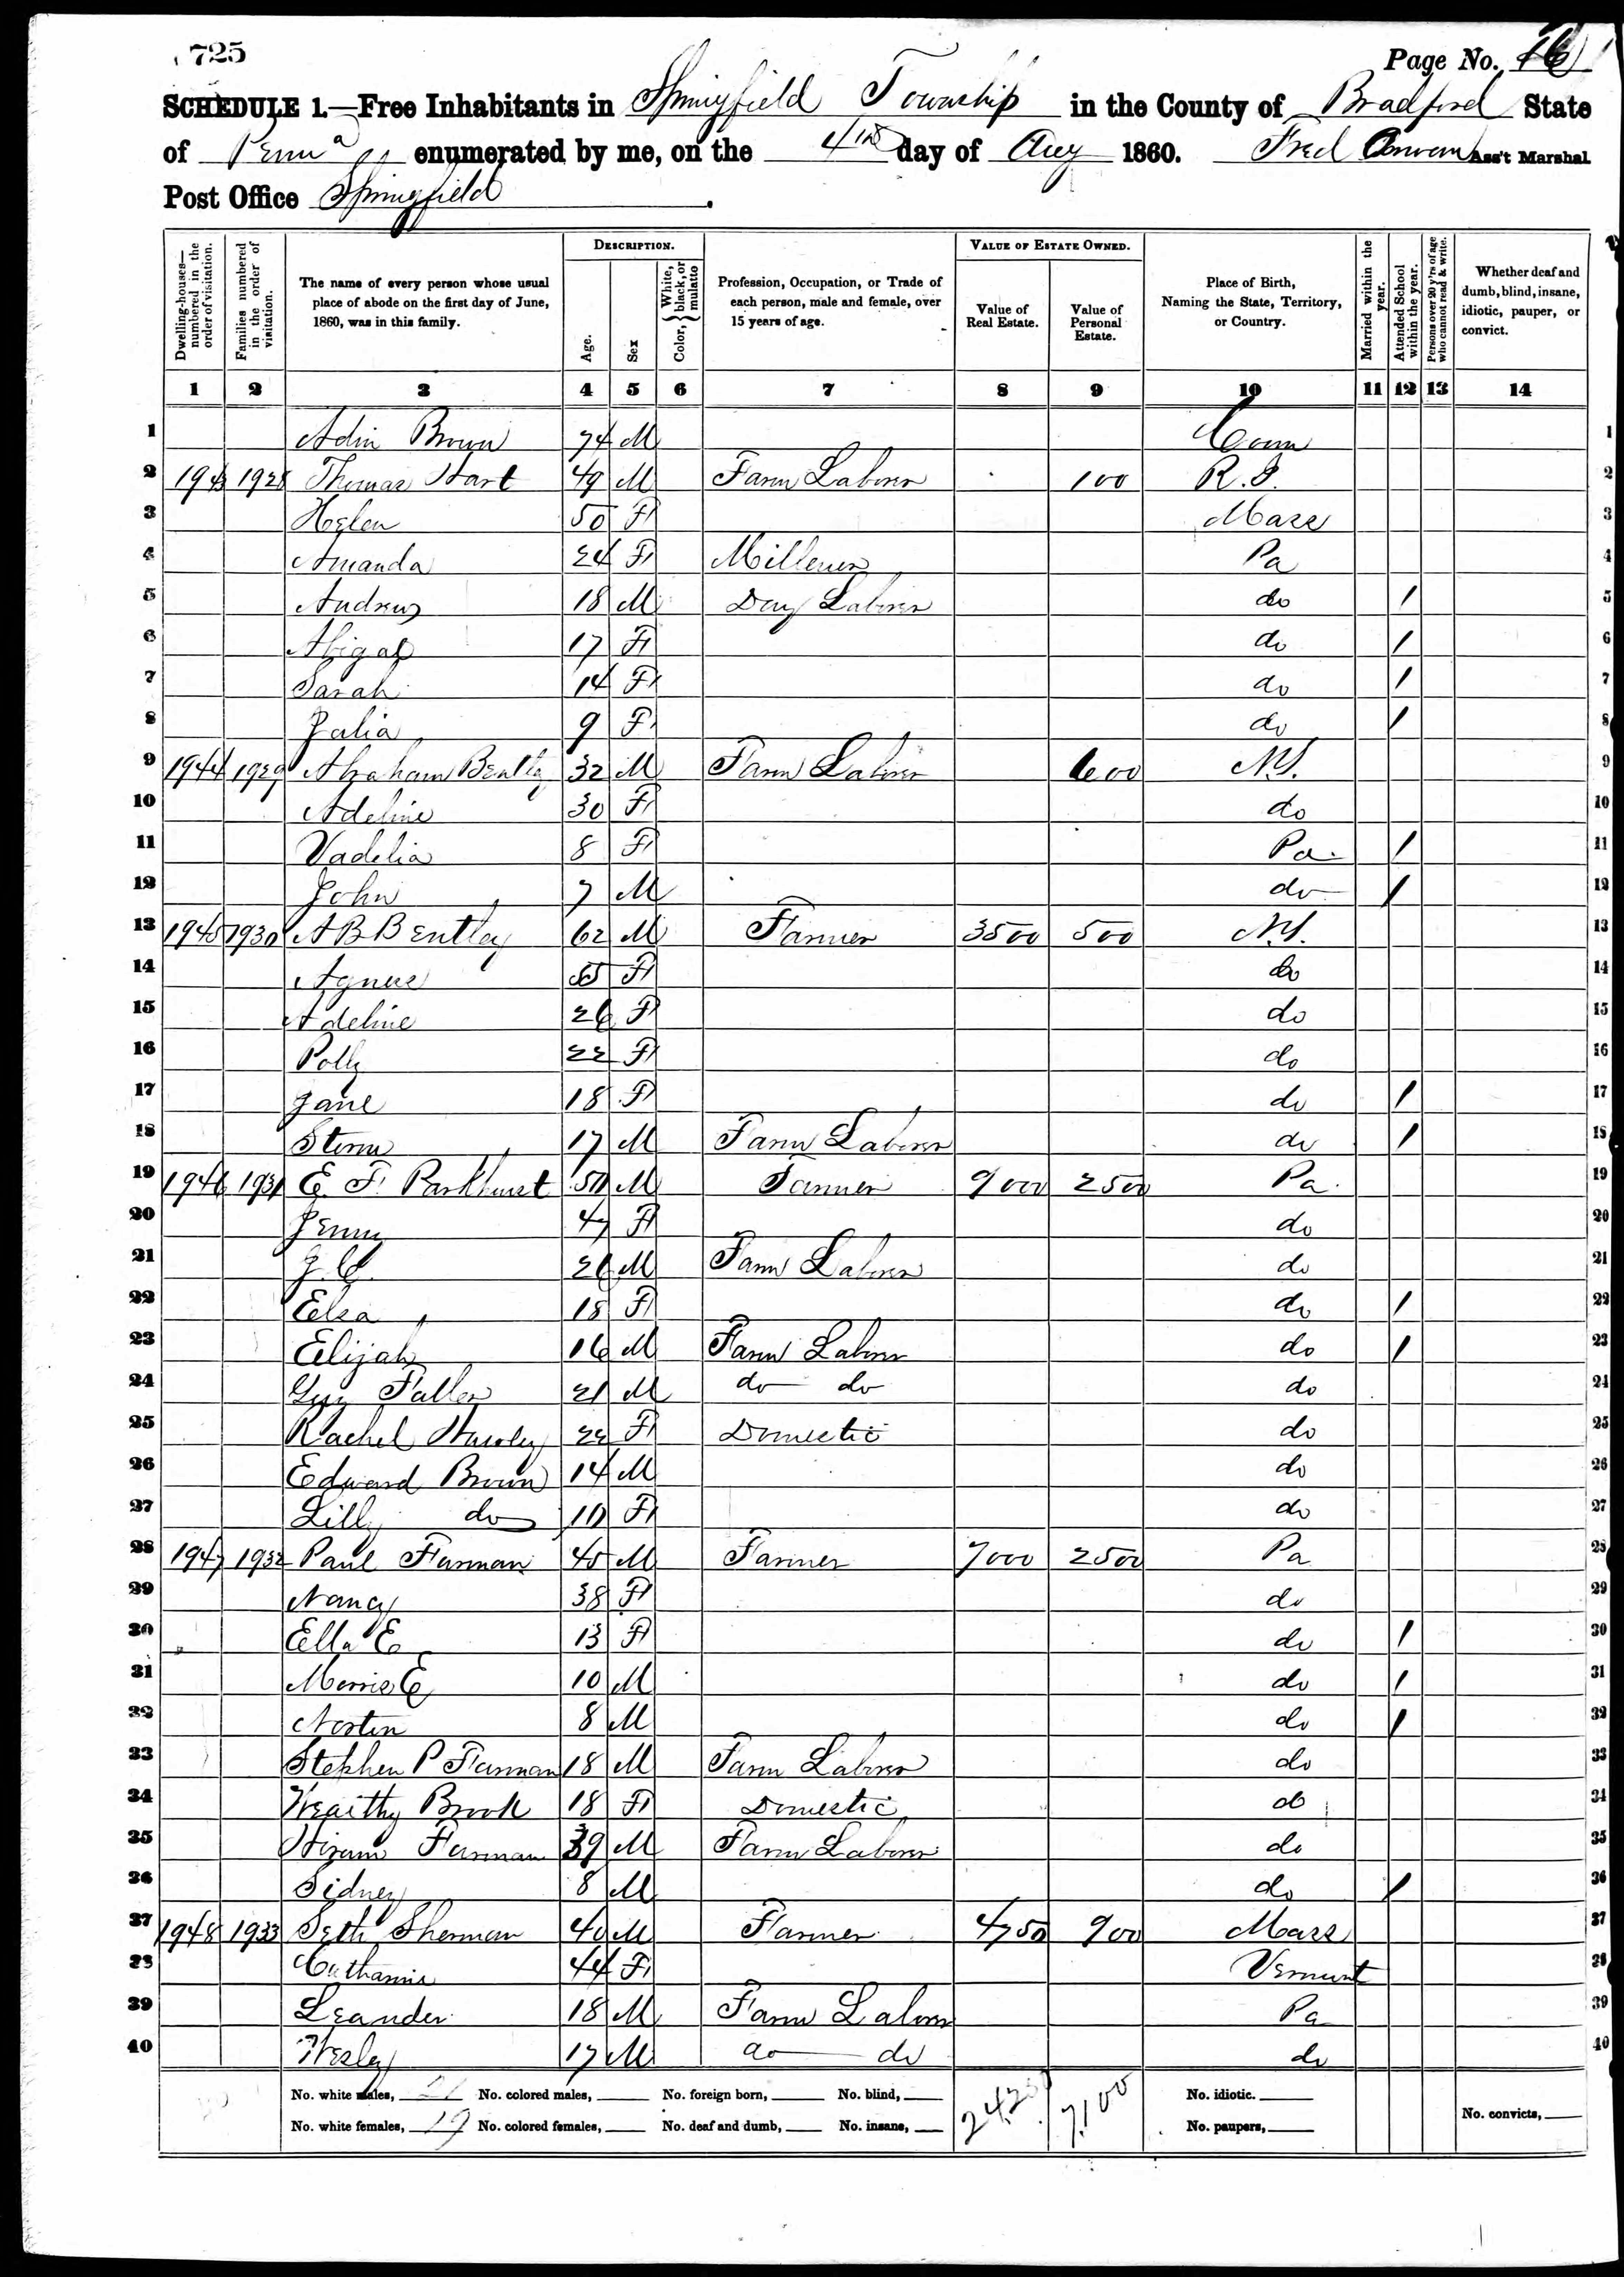 725
Page No. 
SCHEDULE 1.—Free Inhabitants in Springfield Township in the County of Bradford State
of Penna enumerated by me, on the 4th day of Aug 1860. Fred Ass't Marshal
Post Office Springfield.
Dwelling-houses—numbered in the order of visitation. Families numbered in the order of visitation. The name of every person whose usual place of abode on the first day of June, 1860, was in this family. DESCRIPTION. Age. Sex Color, White, black, or mulatto Profession, Occupation, or Trade of each person, male and female, over 15 years of age. VALUE OF ESTATE OWNED. Value of Real Estate. Value of Personal Estate. Place of Birth, Naming the State, Territory, or Country. Married within the year. Attended School within the year. Persons over 20 y'rs of age who cannot read & write. Whether deaf and dumb, blind, insane, idiotic, pauper, or convict.
1 2 3 4 5 6 7 8 9 10 11 12 13 14
1 Adin Brown 74 M Conn 1
2 1943 1928 Thomas Hart 49 M Farm Laborer 100 R.I. 2
3 Helen 50 F Mass 3
4 Amanda 24 F Millener Pa 4
5 Andrew 18 M Day Laborer do / 5
6 Abigal 17 F do / 6
7 Sarah 14 F do / 7
8 Julia 9 F do / 8
9 1944 1929 Abraham Bentley 32 M Farm Laborer 600 N.Y. 9
10 Adeline 30 F do 10
11 Vadelia 8 F Pa / 11
12 John 7 M do / 12
13 1945 1930 A B Bentley 62 M Farmer 3500 500 N.Y. 13
14 Agnes 55 F do 14
15 Adeline 26 F do 15
16 Polly 22 F do 16
17 Jane 18 F do / 17
18 Storm 17 M Farm Laborer do / 18
19 1946 1931 E. F. Parkhurst 50 M Farmer 9000 2500 Pa. 19
20 Jenny 47 F do 20
21 J. C. 26 M Farm Laborer do 21
22 Elsa 18 F do / 22
23 Elijah 16 M Farm Laborer do / 23
24 Guy Fuller 21 M do do do 24
25 Rachel 22 F Domestic do 25
26 Edward Brown 14 M do 26
27 Lilly do 10 F do 27
28 1947 1932 Paul Furman 45 M Farmer 7000 2500 Pa 28
29 Nancy 38 F do 29
30 Ella E 13 F do / 30
31 Morris E 10 M do / 31
32 Norten 8 M do / 32
33 Stephen P Furman 18 M Farm Laborer do 33
34 Wealthy Brook 18 F Domestic do 34
35 Hiram Furman 39 M Farm Laborer do 35
36 Sidney 8 M do / 36
37 1948 1933 Seth Sherman 40 M Farmer 4750 900 Mass 37
38 Catharine 44 F Vermont 38
39 Leander 18 M Farm Laborer Pa 39
40 Wesley 17 M do do do 40
No. white males, 21 No. colored males, No. foreign born, No. blind, 24,250 7,100 No. idiotic.
No. white females, 19 No. colored females, No. deaf and dumb, No. insane, No. paupers, No. convicts,